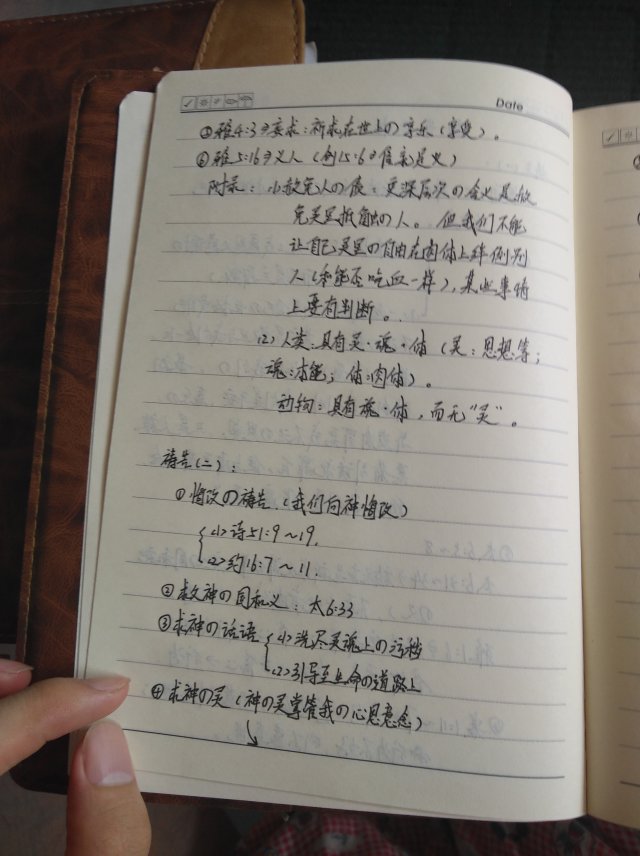 Date
③雅4:3⇒妄求:祈求在世上の享乐(享受)。
④雅5:16⇒义人(创15:6⇒信亲是义)
附录: 小赦免人の债:更深层次の含义是赦
免灵里抵触の人。但我们不能
让自己灵里の自由在肉体上绊倒别
人(和能否吃血一样),某些事情
上要有判断。
(2)人类:具有灵·魂·体(灵:思想等;
魂:本能;体:肉体)。
动物:具有魂·体,而无"灵"。
祷告(二):
①悔改の祷告(我们向神悔改)
<1>诗51:9~19.
<2>约16:7~11.
②求神の国和义:太6:33
③求神の话语 <1>洗尽灵魂上の污秽
<2>引导至生命の道路上
④求神の灵(神の灵掌管我の心思意念)